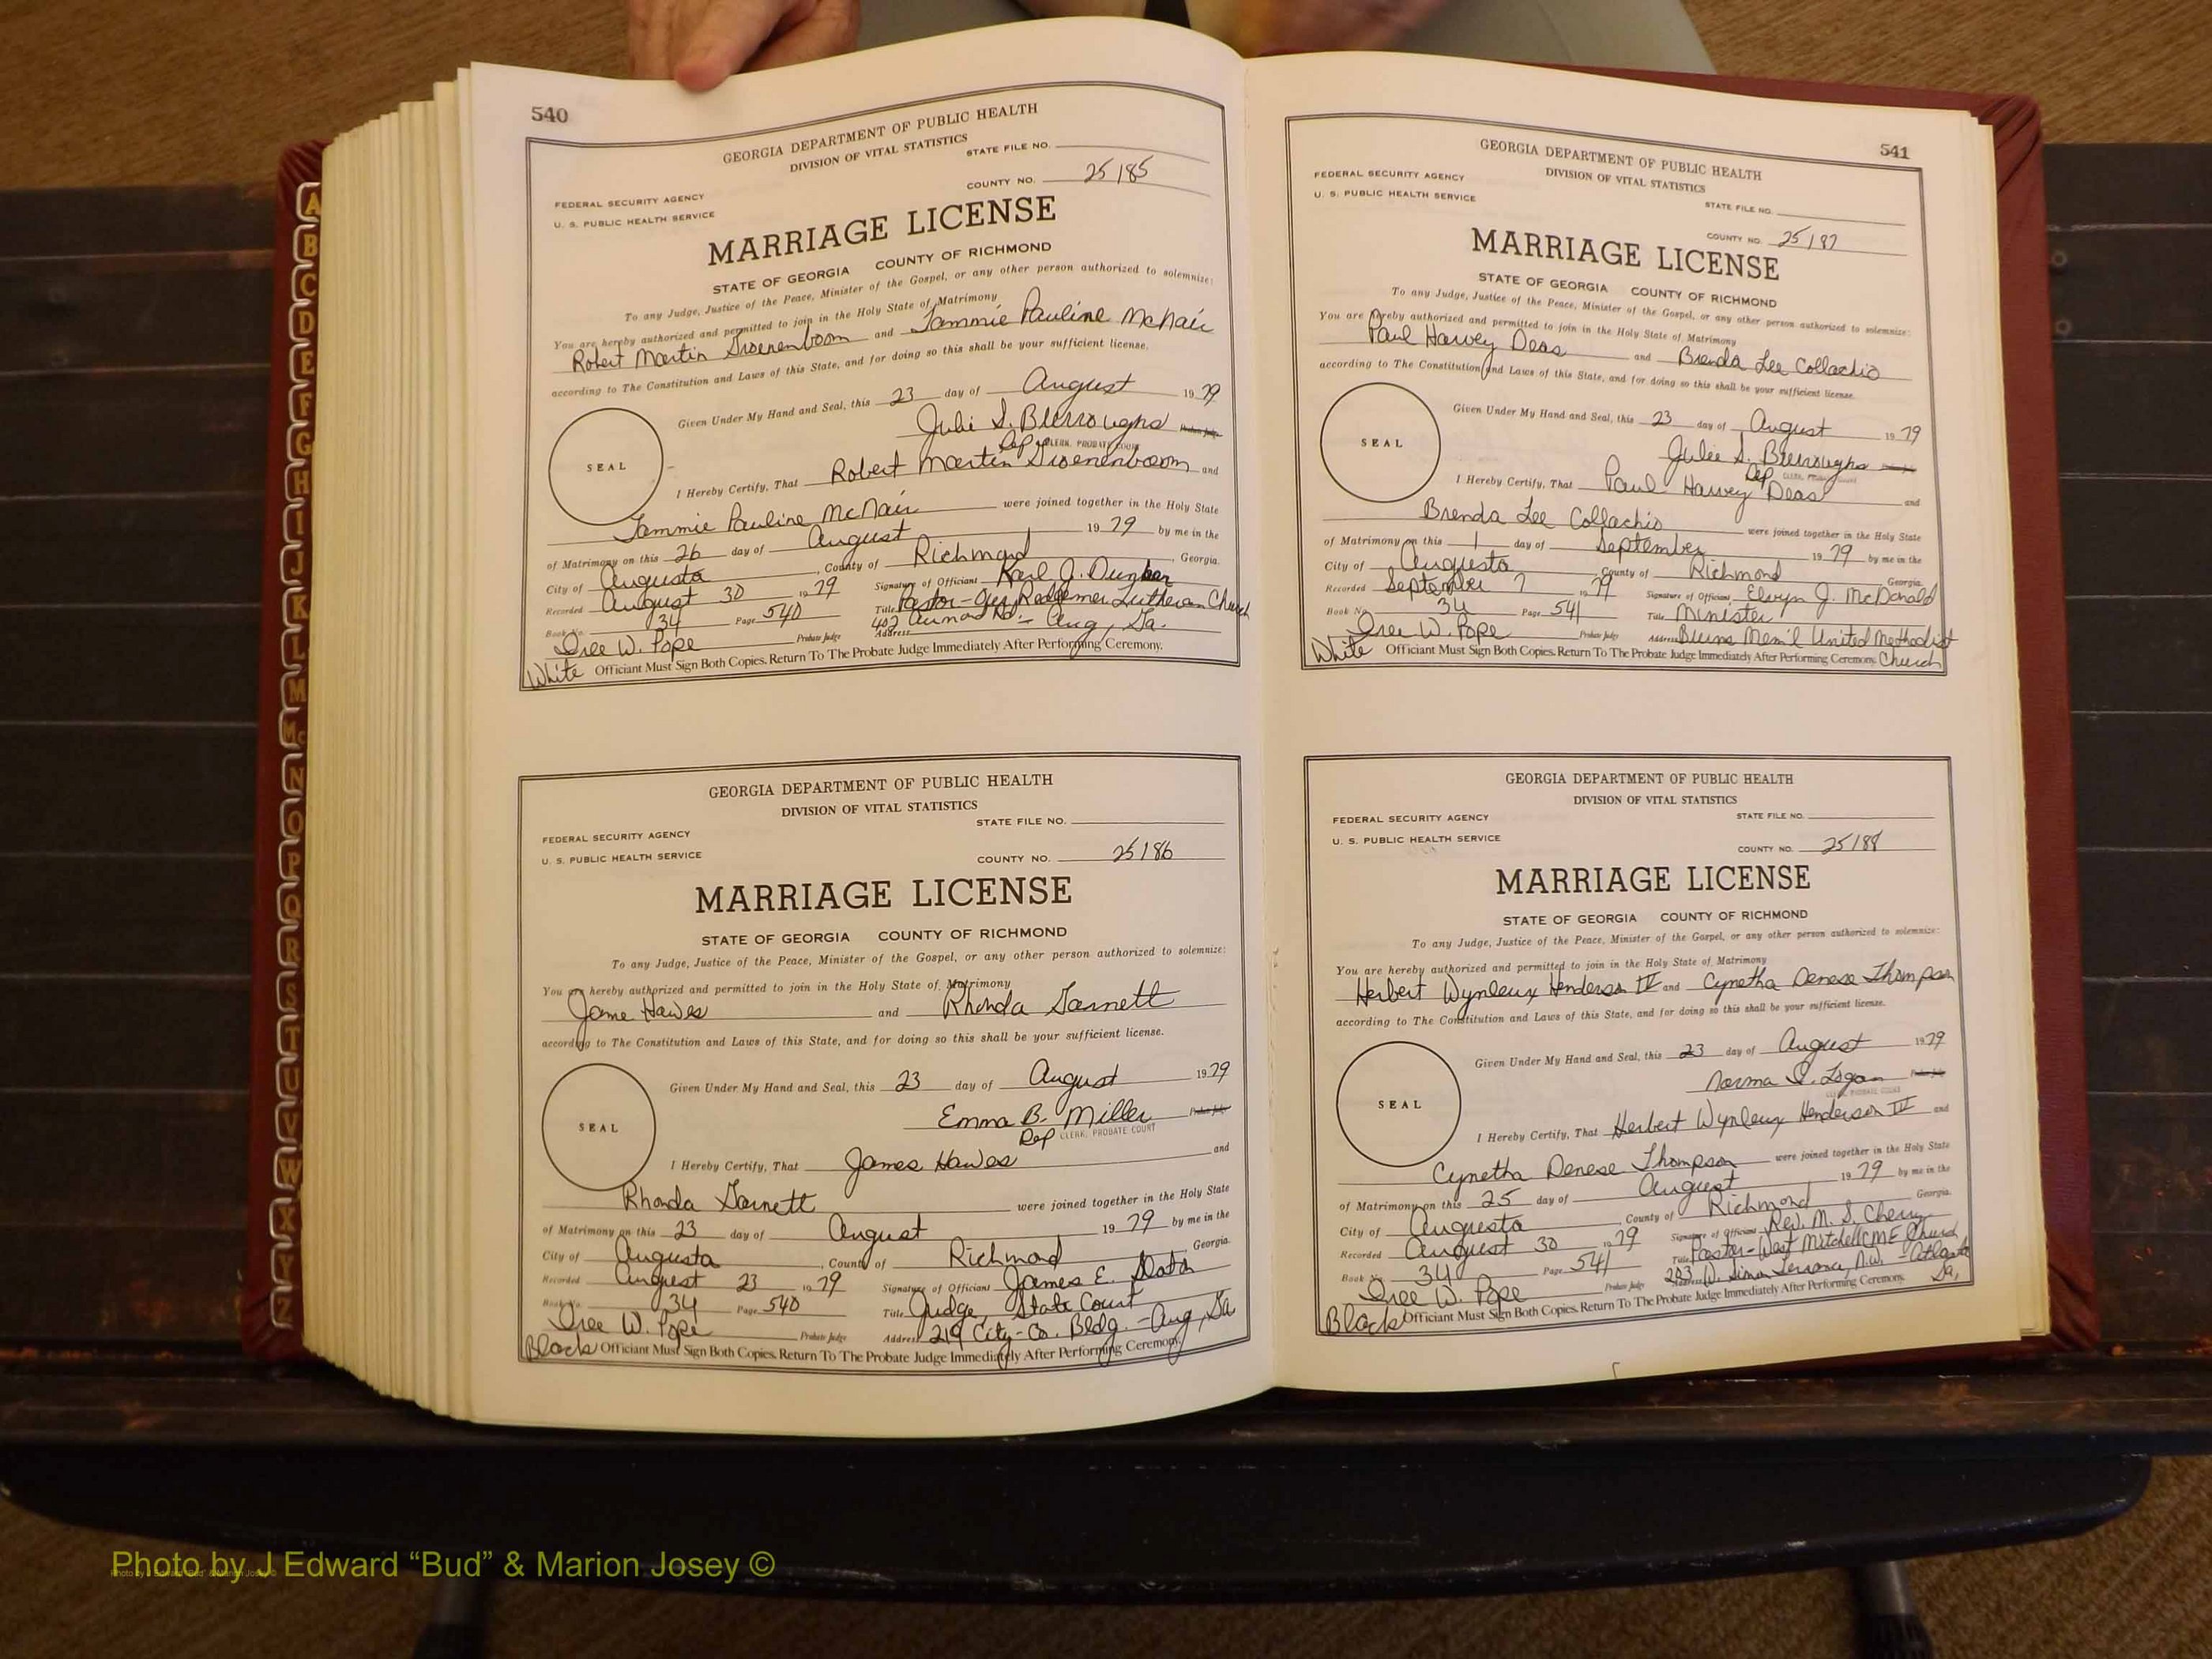 540
GEORGIA DEPARTMENT OF PUBLIC HEALTH
DIVISION OF VITAL STATISTICS
STATE FILE NO.
COUNTY NO. 25185
FEDERAL SECURITY AGENCY
U. S. PUBLIC HEALTH SERVICE
MARRIAGE LICENSE
STATE OF GEORGIA COUNTY OF RICHMOND
To any Judge, Justice of the Peace, Minister of the Gospel, or any other person authorized to solemnize:
You are hereby authorized and permitted to join in the Holy State of Matrimony
Robert Martin Groenenboom and Tammie Pauline McNair
according to The Constitution and Laws of this State, and for doing so this shall be your sufficient license.
Given Under My Hand and Seal, this 23 day of August 1979
Julie S. Burroughs Probate Judge
Dep CLERK, PROBATE COURT
SEAL
I Hereby Certify, That Robert Martin Groenenboom and
Tammie Pauline McNair were joined together in the Holy State
of Matrimony on this 26 day of August 1979 by me in the
City of Augusta, County of Richmond, Georgia.
Recorded August 30 1979 Signature of Officiant Karl J. Dunker
Book No. 34 Page 540 Title Pastor - Redeemer Lutheran Church
Iree W. Pope Probate Judge Address 402 Rd. - Aug, Ga.
White Officiant Must Sign Both Copies. Return To The Probate Judge Immediately After Performing Ceremony.
GEORGIA DEPARTMENT OF PUBLIC HEALTH
DIVISION OF VITAL STATISTICS
STATE FILE NO.
FEDERAL SECURITY AGENCY
U. S. PUBLIC HEALTH SERVICE
COUNTY NO. 25186
MARRIAGE LICENSE
STATE OF GEORGIA COUNTY OF RICHMOND
To any Judge, Justice of the Peace, Minister of the Gospel, or any other person authorized to solemnize:
You are hereby authorized and permitted to join in the Holy State of Matrimony
Jame Hawes and Rhonda Garnett
according to The Constitution and Laws of this State, and for doing so this shall be your sufficient license.
Given Under My Hand and Seal, this 23 day of August 1979
Emma B. Miller Probate Judge
Dep CLERK, PROBATE COURT
SEAL
I Hereby Certify, That James Hawes and
Rhonda Garnett were joined together in the Holy State
of Matrimony on this 23 day of August 1979 by me in the
City of Augusta, County of Richmond Georgia.
Recorded August 23 1979 Signature of Officiant James E. Slaton
Book No. 34 Page 540 Title Judge, State Court
Iree W. Pope Probate Judge Address 219 City-Co. Bldg. - Aug, Ga
Black Officiant Must Sign Both Copies. Return To The Probate Judge Immediately After Performing Ceremony.
541
GEORGIA DEPARTMENT OF PUBLIC HEALTH
DIVISION OF VITAL STATISTICS
FEDERAL SECURITY AGENCY
U. S. PUBLIC HEALTH SERVICE
STATE FILE NO.
COUNTY NO. 25187
MARRIAGE LICENSE
STATE OF GEORGIA COUNTY OF RICHMOND
To any Judge, Justice of the Peace, Minister of the Gospel, or any other person authorized to solemnize:
You are hereby authorized and permitted to join in the Holy State of Matrimony
Paul Harvey Deas and Brenda Lee Collachio
according to The Constitution and Laws of this State, and for doing so this shall be your sufficient license.
Given Under My Hand and Seal, this 23 day of August 1979
Julie S. Burroughs
Dep CLERK, PROBATE COURT
SEAL
I Hereby Certify, That Paul Harvey Deas and
Brenda Lee Collachio were joined together in the Holy State
of Matrimony on this 1 day of September 1979 by me in the
City of Augusta, County of Richmond Georgia.
Recorded September 7 1979 Signature of Officiant Elwyn J. McDonald
Book No. 34 Page 541 Title Minister
Iree W. Pope Probate Judge Address Burns Mem'l United Methodist
White Officiant Must Sign Both Copies. Return To The Probate Judge Immediately After Performing Ceremony. Church
GEORGIA DEPARTMENT OF PUBLIC HEALTH
DIVISION OF VITAL STATISTICS
FEDERAL SECURITY AGENCY
STATE FILE NO.
U. S. PUBLIC HEALTH SERVICE
COUNTY NO. 25188
MARRIAGE LICENSE
STATE OF GEORGIA COUNTY OF RICHMOND
To any Judge, Justice of the Peace, Minister of the Gospel, or any other person authorized to solemnize:
You are hereby authorized and permitted to join in the Holy State of Matrimony
Herbert Wynleux Henderson IV and Cynetha Denese Thompson
according to The Constitution and Laws of this State, and for doing so this shall be your sufficient license.
Given Under My Hand and Seal, this 23 day of August 1979
Norma I. Logan Probate Judge
CLERK, PROBATE COURT
SEAL
I Hereby Certify, That Herbert Wynleux Henderson IV and
Cynetha Denese Thompson were joined together in the Holy State
of Matrimony on this 25 day of August 1979 by me in the
City of Augusta, County of Richmond, Georgia.
Recorded August 30 1979 Signature of Officiant Rev. M. S. Cherry
Book No. 34 Page 541 Title Pastor - West Mitchell CME Church
Iree W. Pope Probate Judge Address 203 W. Simon Terrance, N.W. - Atlanta
Ga,
Black Officiant Must Sign Both Copies. Return To The Probate Judge Immediately After Performing Ceremony.
A
B
C
D
E
F
G
H
I
J
K
L
M
Mc
N
O
P
Q
R
S
T
U
V
W
X
Y
Z
Photo by J Edward “Bud” & Marion Josey ©
Photo by J Edward “Bud” & Marion Josey ©